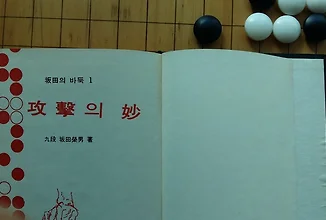 坂田의 바둑 1
攻擊의 妙
九段 坂田榮男 著